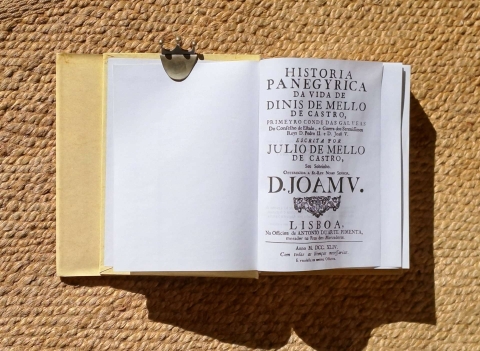 HISTORIA
PANEGYRICA
DA VIDA DE
DINIS DE MELLO
DE CASTRO,
PRIMEYRO CONDE DAS GALVEAS
Do Conselho de Estado, e Guerra dos Serenissimos
Reys D. Pedro II. e D. Joaõ V.
ESCRITA POR
JULIO DE MELLO
DE CASTRO,
Seu Sobrinho.
OFFERECIDA A EL-REY NOSSO SENHOR,
D. JOAM V.
LISBOA.
Na Officina de ANTONIO DUARTE PIMENTA,
Anno M. DCC. XLIV.
Com todas as licenças necessarias.